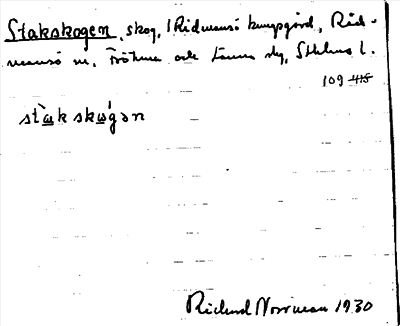 Stakskogen, skog, i Rådmansö kungsgård, Råd-
mansö sn. Frötuna och Länna skg, Sthlms l.
109 415
stakskogən
Richard Norrman 1930